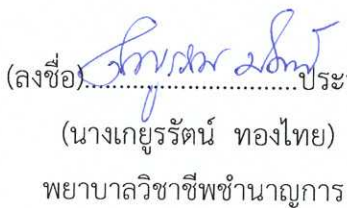 (ลงชื่อ)..............................ประ
(นางเกยูรรัตน์ ทองไทย)
พยาบาลวิชาชีพชำนาญการ